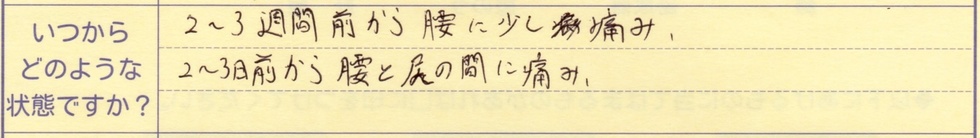 いつから
どのような
状態ですか？
2～3週間前から腰に少し痛み、
2～3日前から腰と尻の間に痛み、